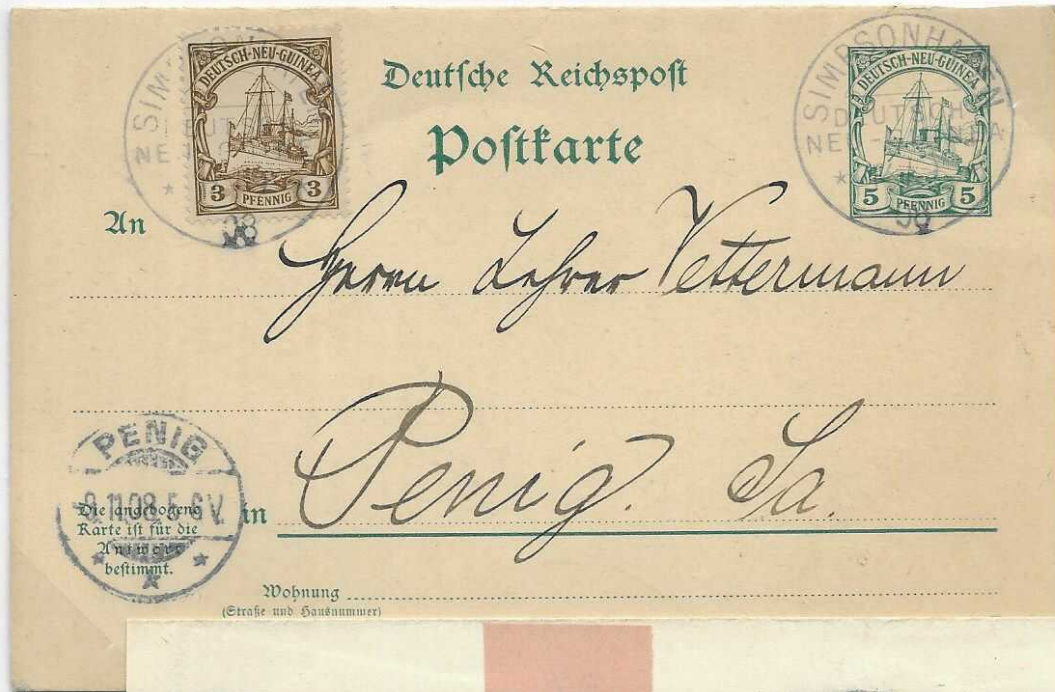 SIMPSONHAFEN
DEUTSCH-
NEU-GUINEA
08
DEUTSCH-NEU-GUINEA
3 PFENNIG 3
Deutsche Reichspost
Postkarte
SIMPSONHAFEN
DEUTSCH-
NEU-GUINEA
DEUTSCH-NEU-GUINEA
5 PFENNIG 5
An
Herrn Lehrer Vettermann
PENIG
11.08. 5-6V.
Die angebogene
Karte ist für die
Antwort
bestimmt.
in Penig. Sa.
Wohnung
(Straße und Hausnummer)